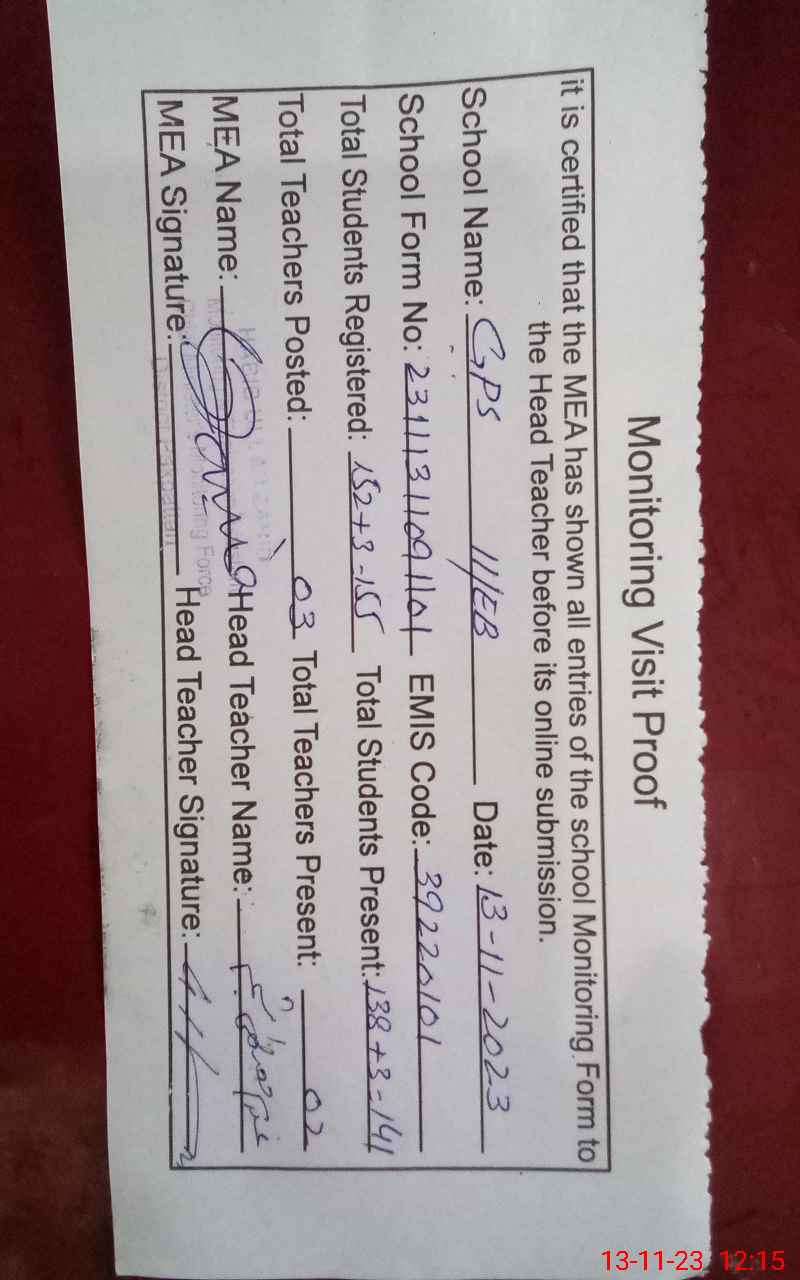 Monitoring Visit Proof
it is certified that the MEA has shown all entries of the school Monitoring Form to
the Head Teacher before its online submission.
School Name: GPS 11/EB Date: 13-11-2023
School Form No: 23111311091101 EMIS Code: 39220101
Total Students Registered: 152+3=155 Total Students Present: 138+3=141
Total Teachers Posted: 03 Total Teachers Present: 02
MEA Name: Head Teacher Name:
MEA Signature: Head Teacher Signature:
13-11-23 12:15